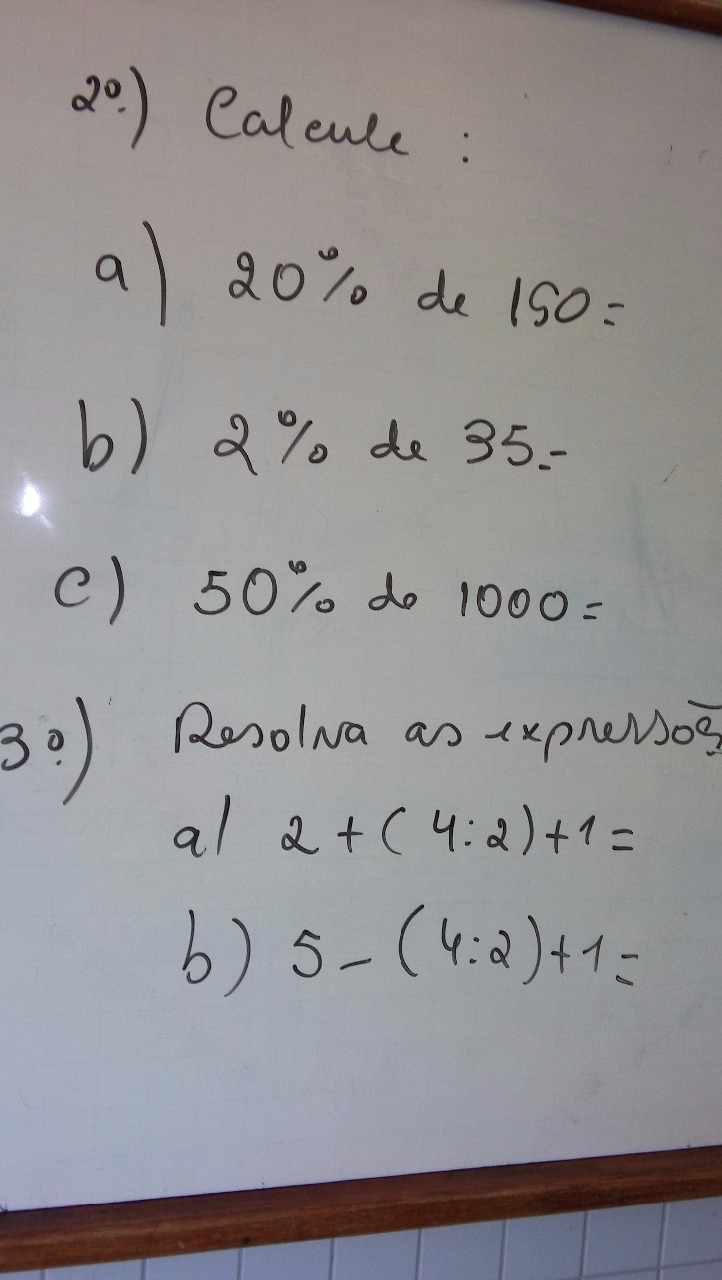 2º) Calcule :
a) 20% de 150=
b) 2% de 35.=
c) 50% de 1000=
3º) Resolva as expressões
a) 2 + ( 4:2)+1=
b) 5 - (4:2)+1=